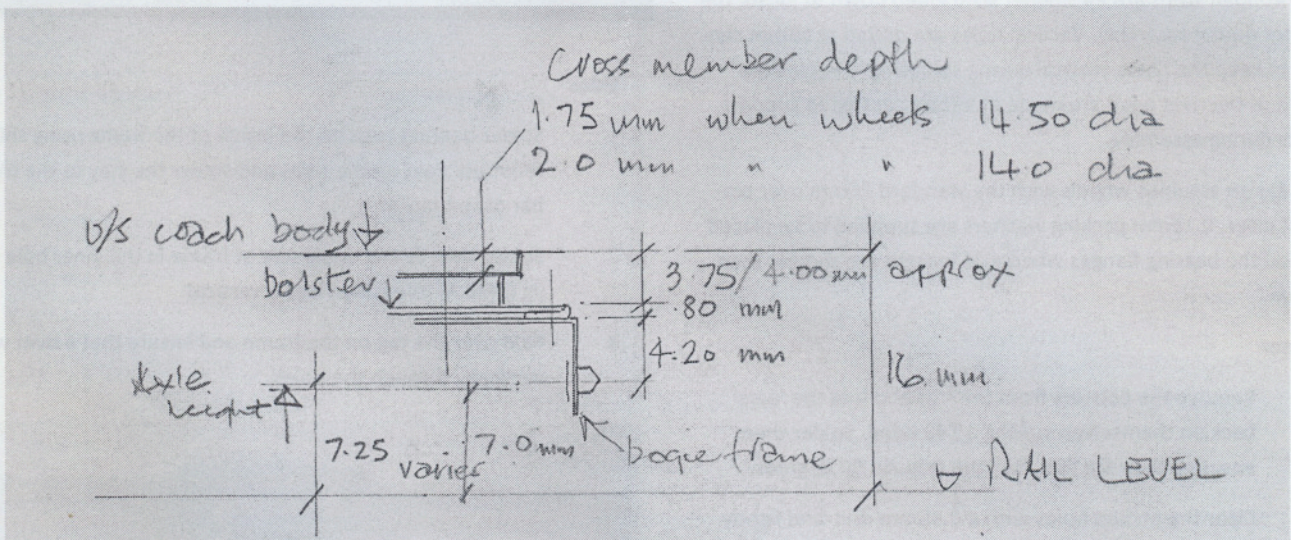 Cross member depth
1.75 mm when wheels 14.50 dia
2.0 mm " " 14.0 dia
U/S coach body
bolster
3.75/4.00mm approx
.80 mm
4.20 mm
16 mm
Axle height
7.25 varies 7.0mm
bogie frame
RAIL LEVEL